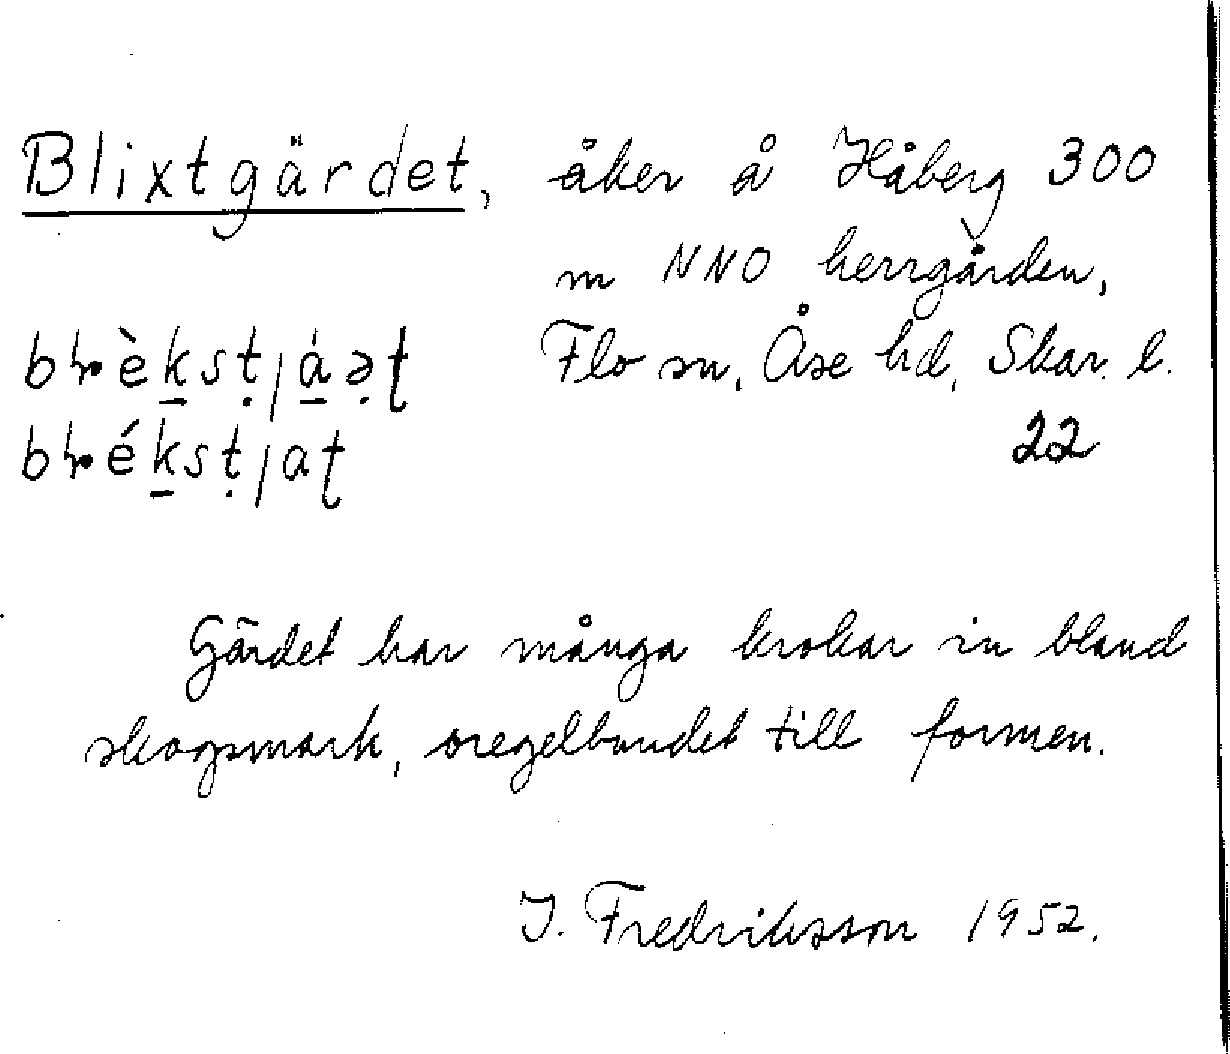 Blixtgärdet, åker å Håberg 300
m NNO herrgården,
Flo sn, Åse hd, Skar. l.
22
Gärdet har många krokar in bland
skogsmark, oregelbundet till formen.
I. Fredriksson 1952.